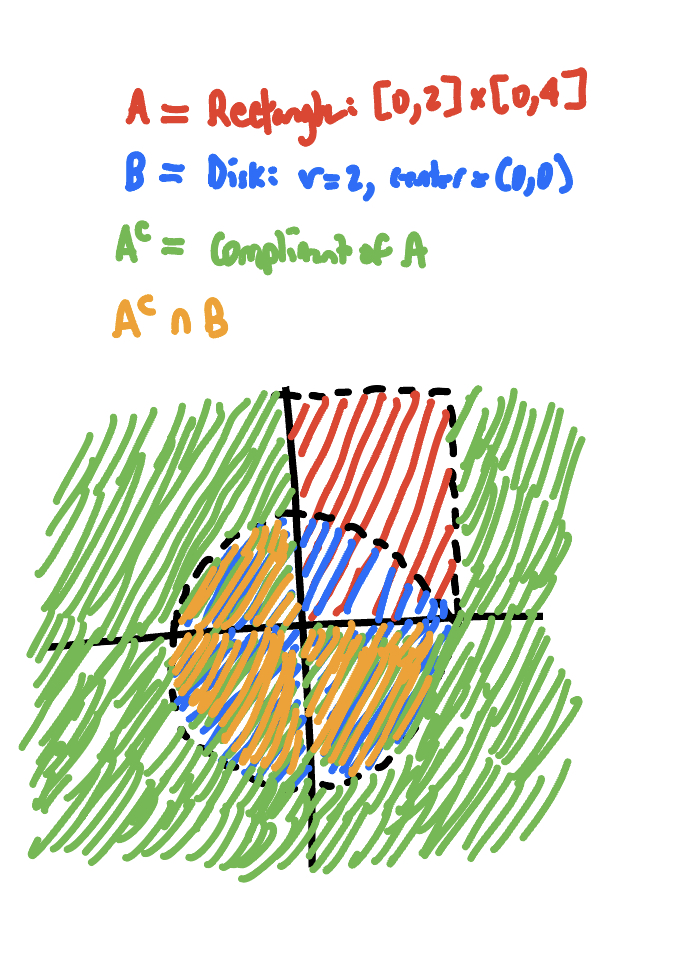 A = Rectangle: [0,2]x[0,4]
B = Disk: r=2, center=(0,0)
Aᶜ = Compliment of A
Aᶜ ∩ B